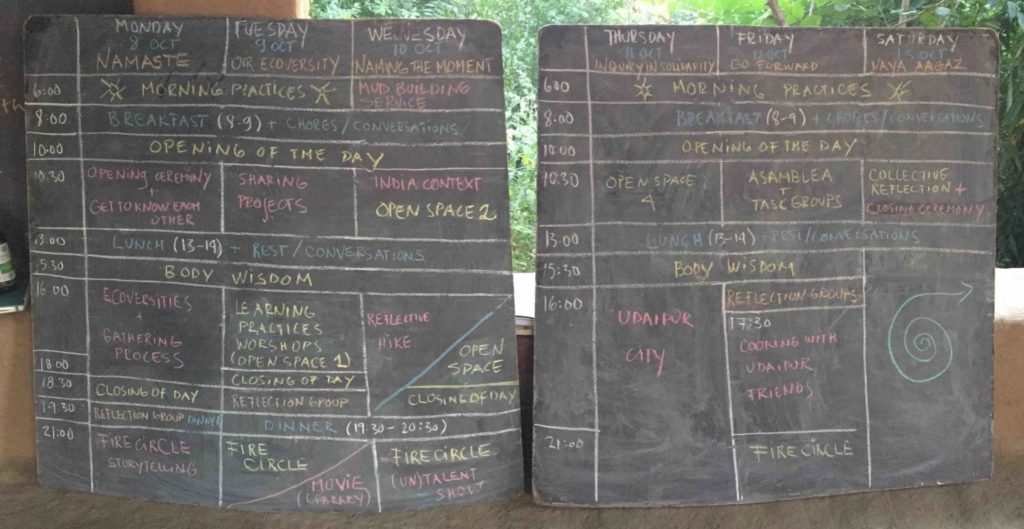 MONDAY TUESDAY WEDNESDAY
8 OCT 9 OCT 10 OCT
NAMASTE OUR ECOVERSITY NAMING THE MOMENT
6:00 MORNING PRACTICES MUD BUILDING
SERVICE
8:00 BREAKFAST (8-9) + CHORES/CONVERSATIONS
10:00 OPENING OF THE DAY
10:30 OPENING CEREMINY
+
GET TO KNOW EACH
OTHER
SHARING
PROJECTS
INDIA CONTEXT
OPEN SPACE 2
13:00 LUNCH (13-14) + REST/CONVERSATIONS
15:30 BODY WISDOM
16:00 ECOVERSITIES
+
GATHERING
PROCESS
LEARNING
PRACTICES
WORSHOPS
(OPEN SPACE 1)
REFLECTIVE
HIKE
OPEN
SPACE
18:00 CLOSING OF DAY
18:30 CLOSING OF DAY REFLECTION GROUP CLOSING OF DAY
19:30 REFLECTION GROUP DINNER DINNER (19:30-20:30)
21:00 FIRE CIRCLE
STORYTELLING
FIRE
CIRCLE
MOVIE
(LIBRARY)
FIRE CIRCLE
(UN)TALENT
SHOW
THURSDAY FRIDAY SATURDAY
11 OCT 12 OCT 13 OCT
INQUIRY IN SOLIDARITY GO FORWARD NAYA AAGAZ
6:00 MORNING PRACTICES
8:00 BREAKFAST (8-9) + CHORES/CONVERSATIONS
10:00 OPENING OF THE DAY
10:30 OPEN SPACE
4
ASAMBLEA
+
TASK GROUPS
COLLECTIVE
REFLECTION +
CLOSING CEREMONY
13:00 LUNCH (13-14) + REST/CONVERSATIONS
15:30 BODY WISDOM
16:00 UDAIPUR
CITY
REFLECTION GROUPS
17:30
COOKING WITH
UDAIPUR
FRIENDS
21:00 FIRE CIRCLE